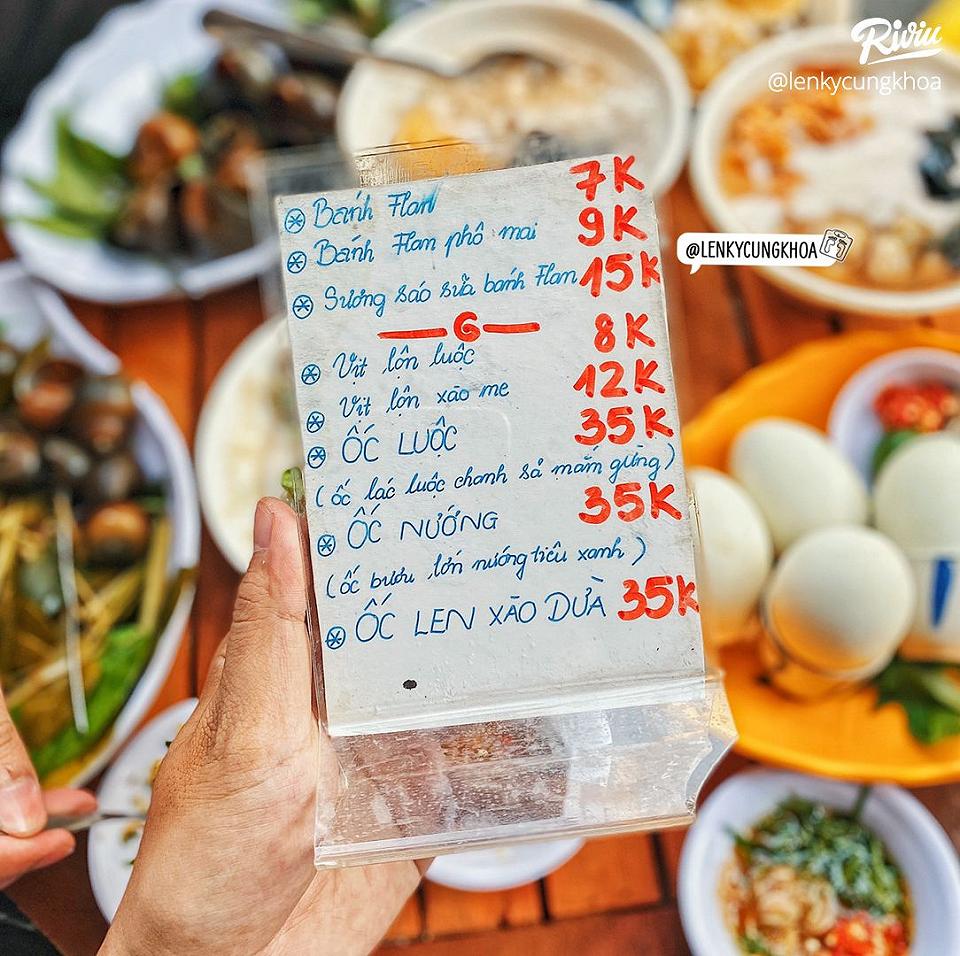 Riviu
@lenkycungkhoa
@LENKYCUNGKHOA
Bánh Flan 7K
Bánh Flan phô mai 9K
Sương sáo sữa bánh Flan 15K
G
Vịt lộn luộc 8K
Vịt lộn xào me 12K
ỐC LUỘC 35K
(ốc lác luộc chanh sả mắm gừng)
ỐC NƯỚNG 35K
(ốc bươu, lớn nướng tiêu xanh)
ỐC LEN XÀO DỪA 35K